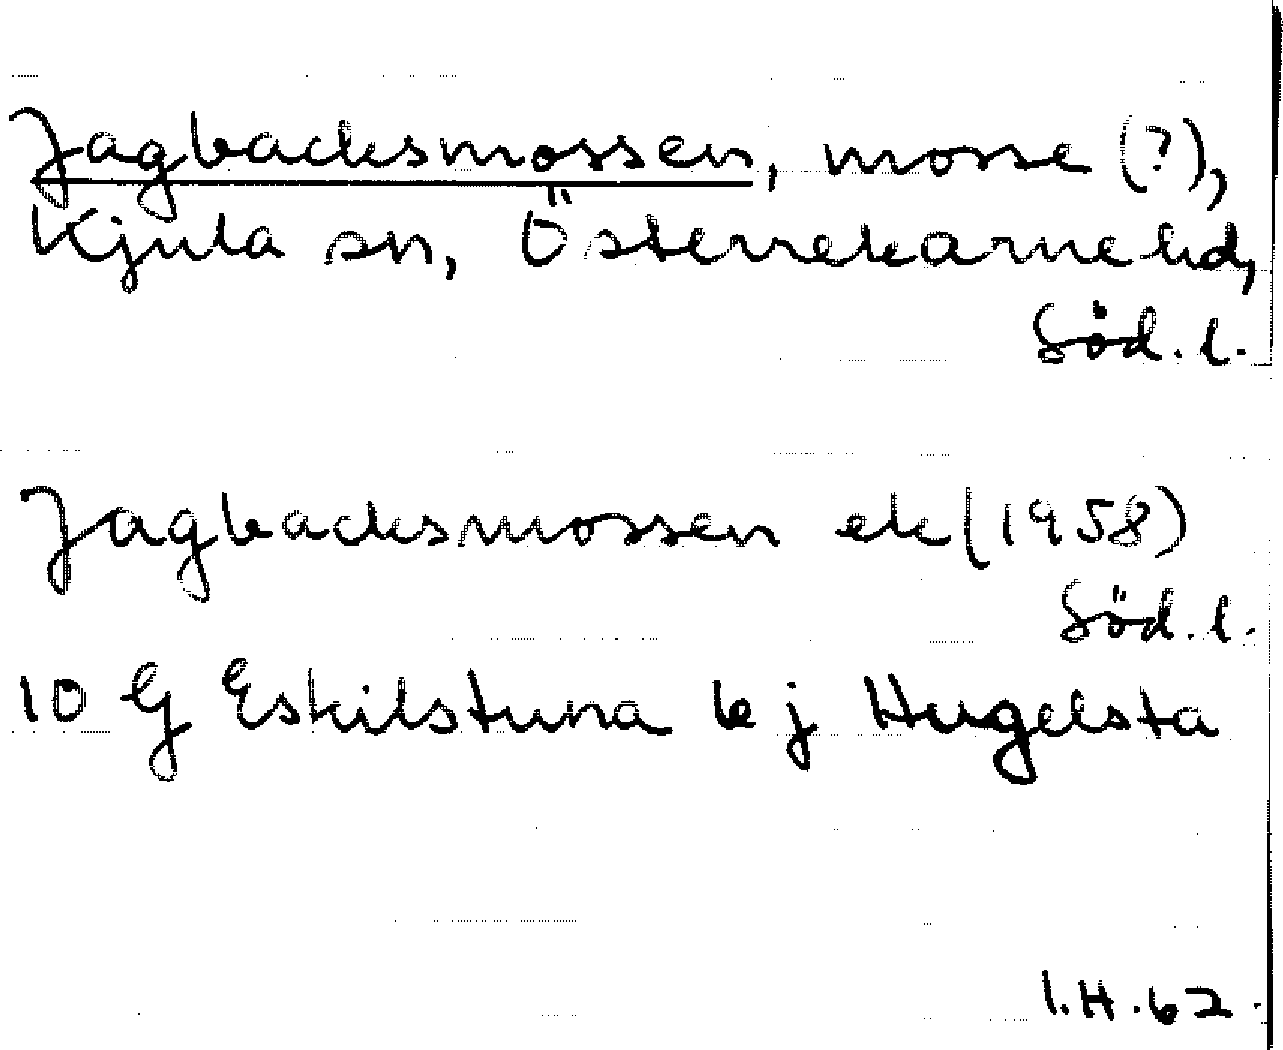 Jagbacksmossen, mosse (?),
Kjula sn, Österrekarne hd,
Söd. l.
Jagbacksmossen ek (1958)
Söd. l.
10 G Eskilstuna 6 j Hugelsta
I.H. 62.